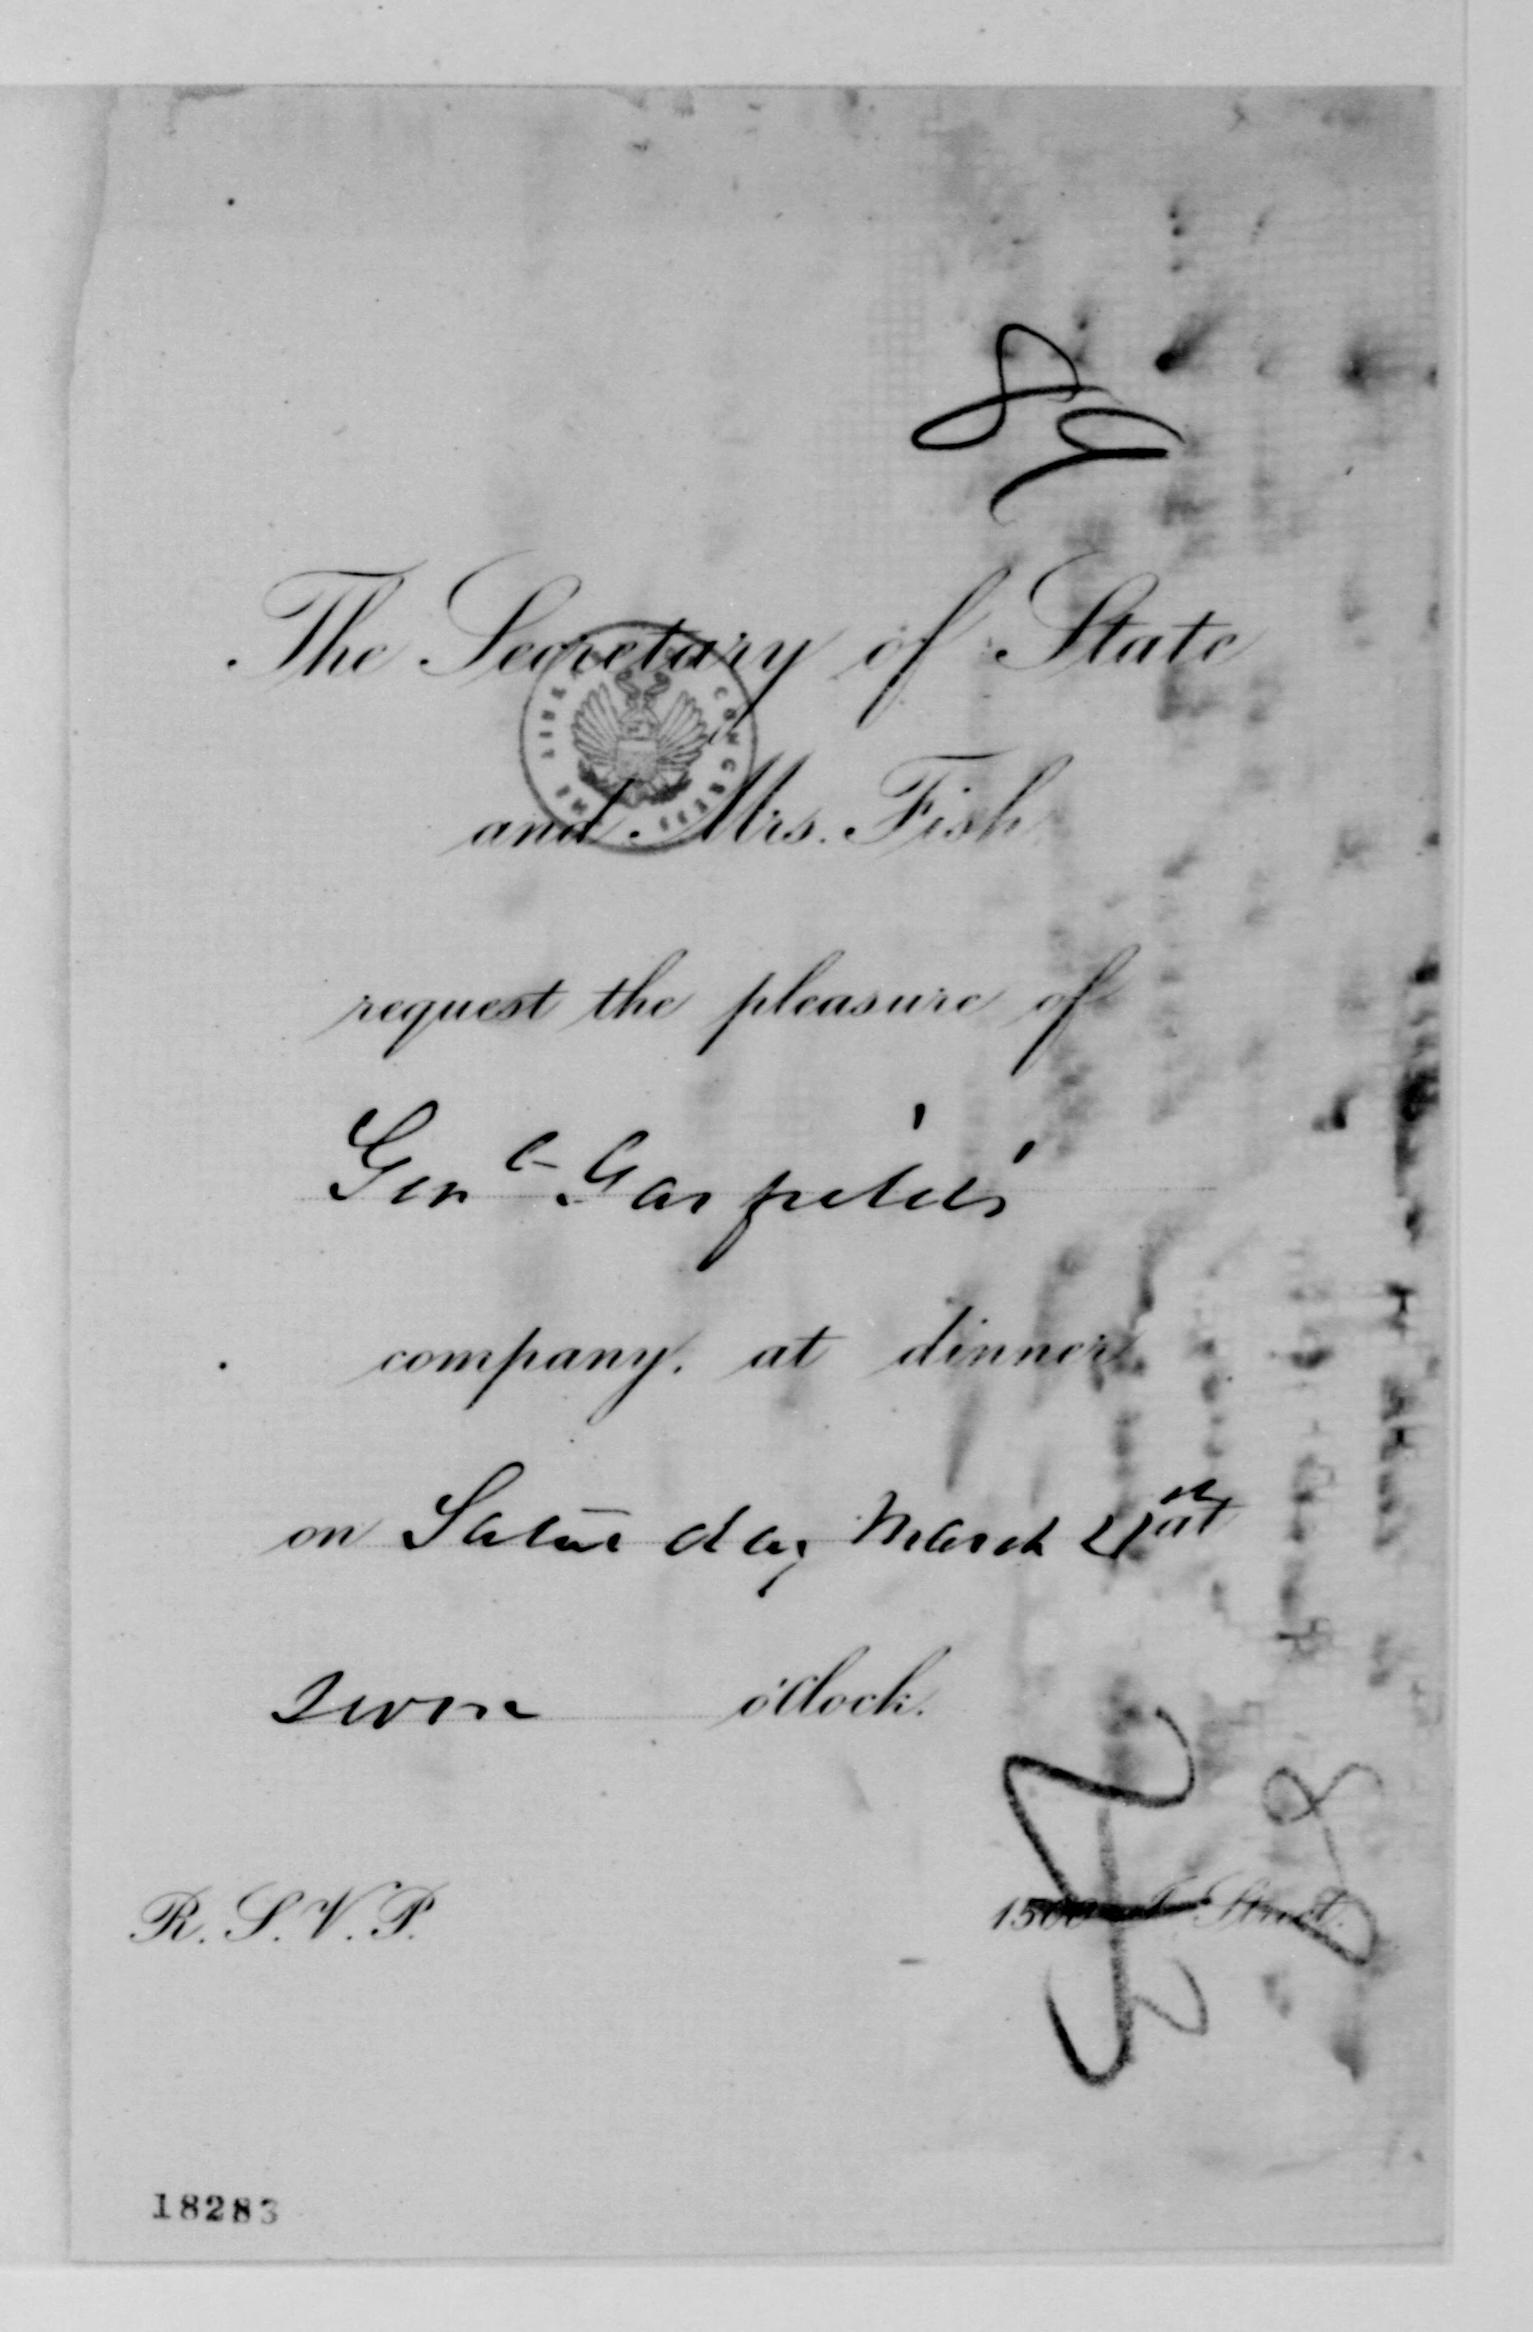 89
The Secretary of State
THE LIBRARY CONGRESS
and Mrs. Fish
request the pleasure of
Genl Garfield's
company, at dinner
on Saturday March 21st at
seven o'clock.
R. S. V. P.
1500 I Street.
18283